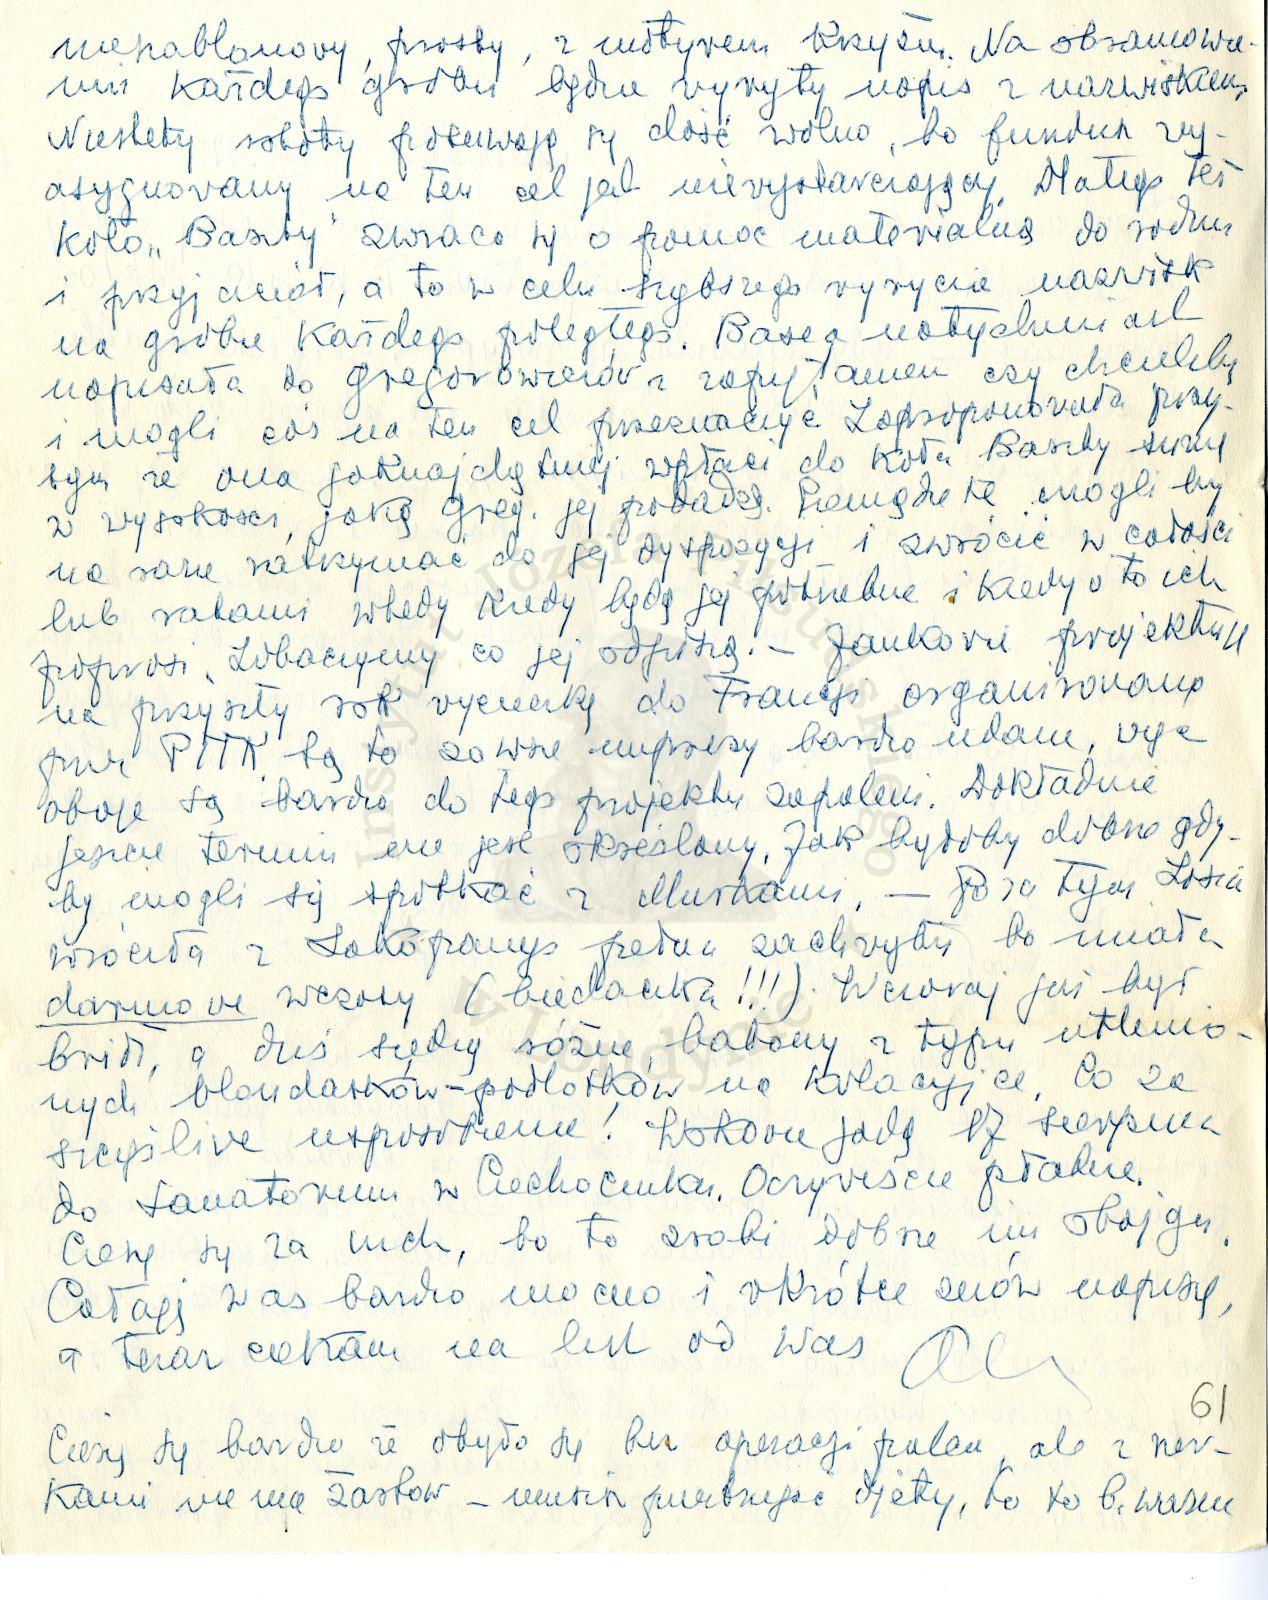 nieszablonowy, prosty, z motywem Krzyża. Na obramowa-
niu Każdego grobu będzie wyryty napis z nazwiskiem.
Niestety roboty posuwają się dość wolno, bo fundusz wy-
asygnowany na ten cel jest niewystarczający. Dlatego też
Koło „Baszty" zwraca się o pomoc materialną do rodzin
i przyjaciół, a to w celu szybszego wyrycia nazwisk
na grobie Każdego poległego. Basia natychmiast
napisała do Gregorowiczów z zapytaniem czy chcieliby
i mogli coś na ten cel przeznaczyć. Zaproponowała przy-
tym że ona jaknajchętniej wpłaci do Koła Baszty sumę
w wysokości, jaką Greg. jej podadzą. Pieniądze te mogli by
na razie zatrzymać do jej dyspozycji i zwrócić w całości
lub ratami wtedy Kiedy będą jej potrzebne i Kiedy o to ich
poprosi. Zobaczymy co jej odpiszą. – Jankowie projektują
na przyszły rok wycieczkę do Francji organizowaną
przez PTTK. Są to zawsze imprezy bardzo udane, więc
oboje są bardzo do tego projektu zapaleni. Dokładnie
jeszcze termin nie jest określony. Jak byłoby dobrze gdy-
by mogli się spotkać z Murkami. – Poza tym Zosia
wróciła z Zakopanego pełna zachwytu bo miała
darmowe wczasy (biedaczka!!!). Wczoraj już był
bridż, a dziś siedzą różne babony z typu utlenio-
nych blondasków-podlotków na Kolacyjce. Co za
szczęśliwe usposobienie! Lokowie jadą 17 sierpnia
do Sanatorium w Ciechocinku. Oczywiście płatne.
Cieszę się za nich, bo to zrobi dobrze im obojgu.
Całuję Was bardzo mocno i wKrótce znów napiszę,
a teraz czekam na list od Was
61
Cieszę się bardzo że obyło się bez operacji palca, ale z ner-
Kami nie ma żartów – musisz przestrzegać djety, to to b. ważne
Instytut Józefa Piłsudskiego
w Londynie